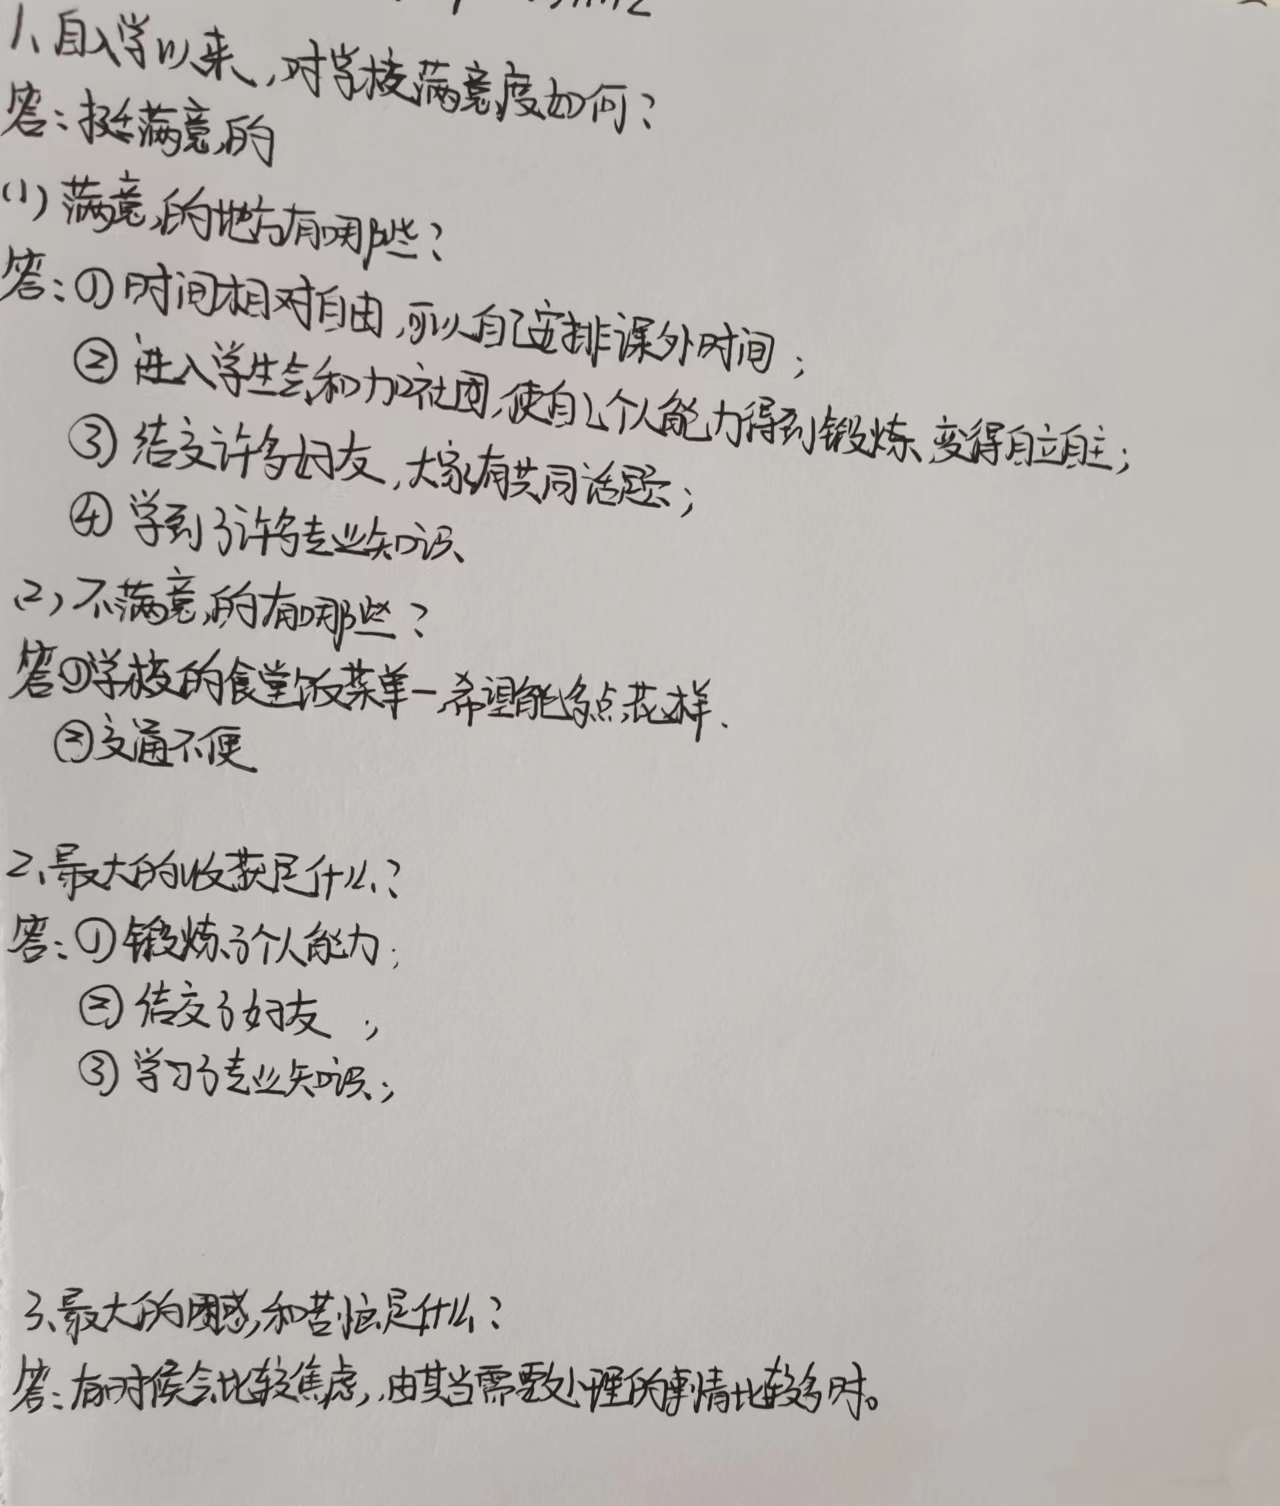 1、自入学以来,对学校满意度如何?
答:挺满意的
(1)满意的地方有哪些?
答:①时间相对自由,可以自己安排课外时间;
②进入学生会和加社团,使自己个人能力得到锻炼、变得自立自主;
③结交许多好友,大家有共同话题;
④学到了许多专业知识、
(2)不满意的有哪些?
答①学校的食堂饭菜单一,希望能多点花样.
②交通不便
2、最大的收获是什么?
答:①锻炼了个人能力;
②结交了好友;
③学习了专业知识;
3、最大的困惑和苦恼是什么?
答:有时候会比较焦虑,由其当需要处理的事情比较多时。